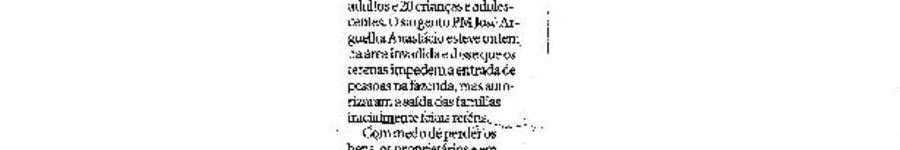 adultos e 20 crianças e adoles-
centes. O sargento PM José Ar-
guelha Anastácio esteve ontem
na área invadida e disse que os
terenas impedem a entrada de
pessoas na fazenda, mas auto-
rizaram a saída das famílias
inicialmente feitas reféns.
Com medo de perder os
bens, os proprietários e em